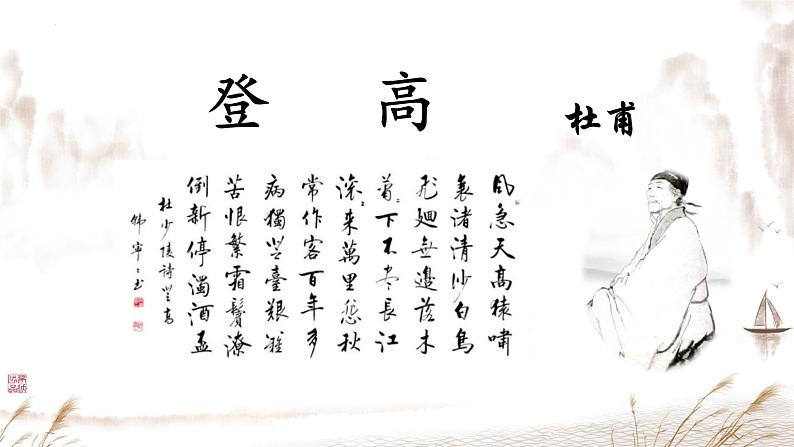 登 高
杜甫
风急天高猿嘯
哀渚清沙白鳥
飛廻無邊落木
萧〻下不尽長江
滚〻来萬里悲秋
常作客百年多
病獨登臺艱難
苦恨繁霜鬢潦
倒新停濁酒盃
杜少陵詩登高